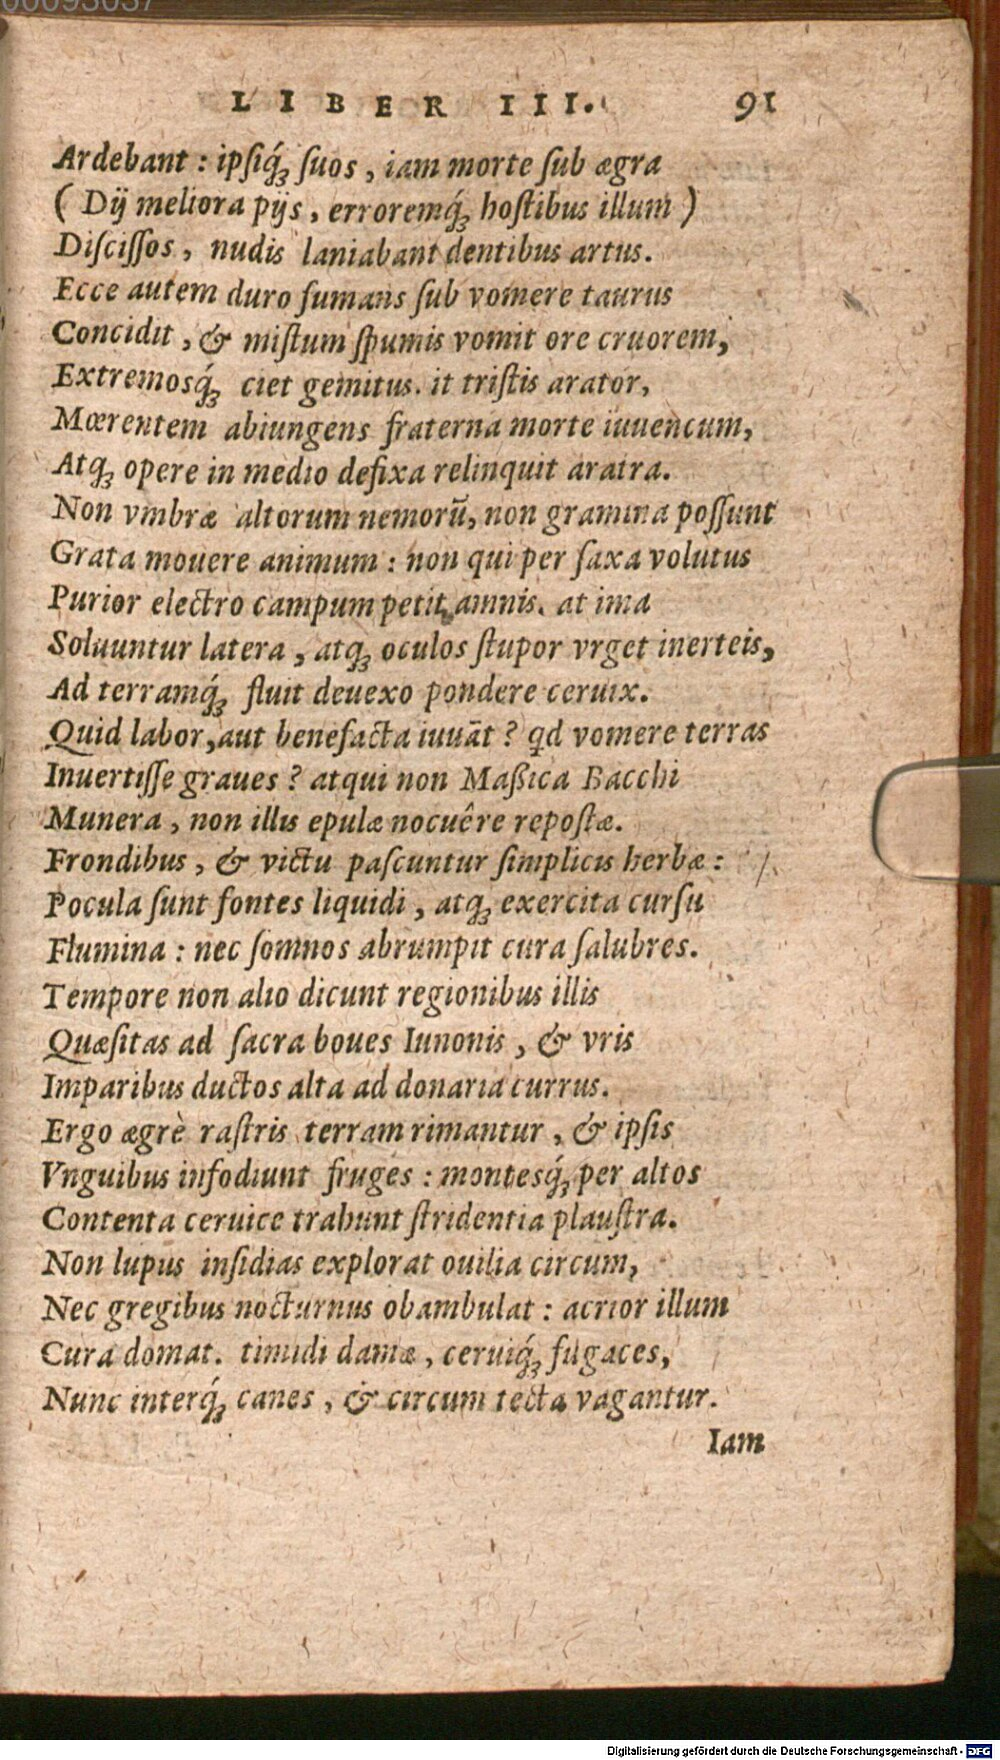 00093037
LIBER III. 91
Ardebant : ipſiq́ꝫ ſuos , iam morte ſub ægra
( Dij meliora pijs , erroremq́ꝫ hoſtibus illum )
Diſciſſos , nudis laniabant dentibus artus.
Ecce autem duro fumans ſub vomere taurus
Concidit , & miſtum ſpumis vomit ore cruorem,
Extremosq́ꝫ ciet gemitus. it triſtis arator,
Mœrentem abiungens fraterna morte iuuencum,
Atqꝫ opere in medio defixa relinquit aratra.
Non vmbræ altorum nemorũ, non gramina poſſunt
Grata mouere animum : non qui per ſaxa volutus
Purior electro campum petit amnis. at ima
Soluuntur latera , atqꝫ oculos ſtupor vrget inerteis,
Ad terramq́ꝫ fluit deuexo pondere ceruix.
Quid labor,aut benefacta iuuãt ? qd vomere terras
Inuertiſſe graues ? atqui non Maßica Bacchi
Munera , non illis epulæ nocuêre repoſtæ.
Frondibus , & victu paſcuntur ſimplicis herbæ :
Pocula ſunt fontes liquidi , atqꝫ exercita curſu
Flumina : nec ſomnos abrumpit cura ſalubres.
Tempore non alio dicunt regionibus illis
Quæſitas ad ſacra boues Iunonis , & vris
Imparibus ductos alta ad donaria currus.
Ergo ægrè raſtris terram rimantur , & ipſis
Vnguibus infodiunt fruges : montesq́ꝫ per altos
Contenta ceruice trahunt ſtridentia plauſtra.
Non lupus inſidias explorat ouilia circum,
Nec gregibus nocturnus obambulat : acrior illum
Cura domat. timidi damæ , ceruiq́ꝫ fugaces,
Nunc interq́ꝫ canes , & circum tecta vagantur.
Iam
Digitalisierung gefördert durch die Deutsche Forschungsgemeinschaft - DFG